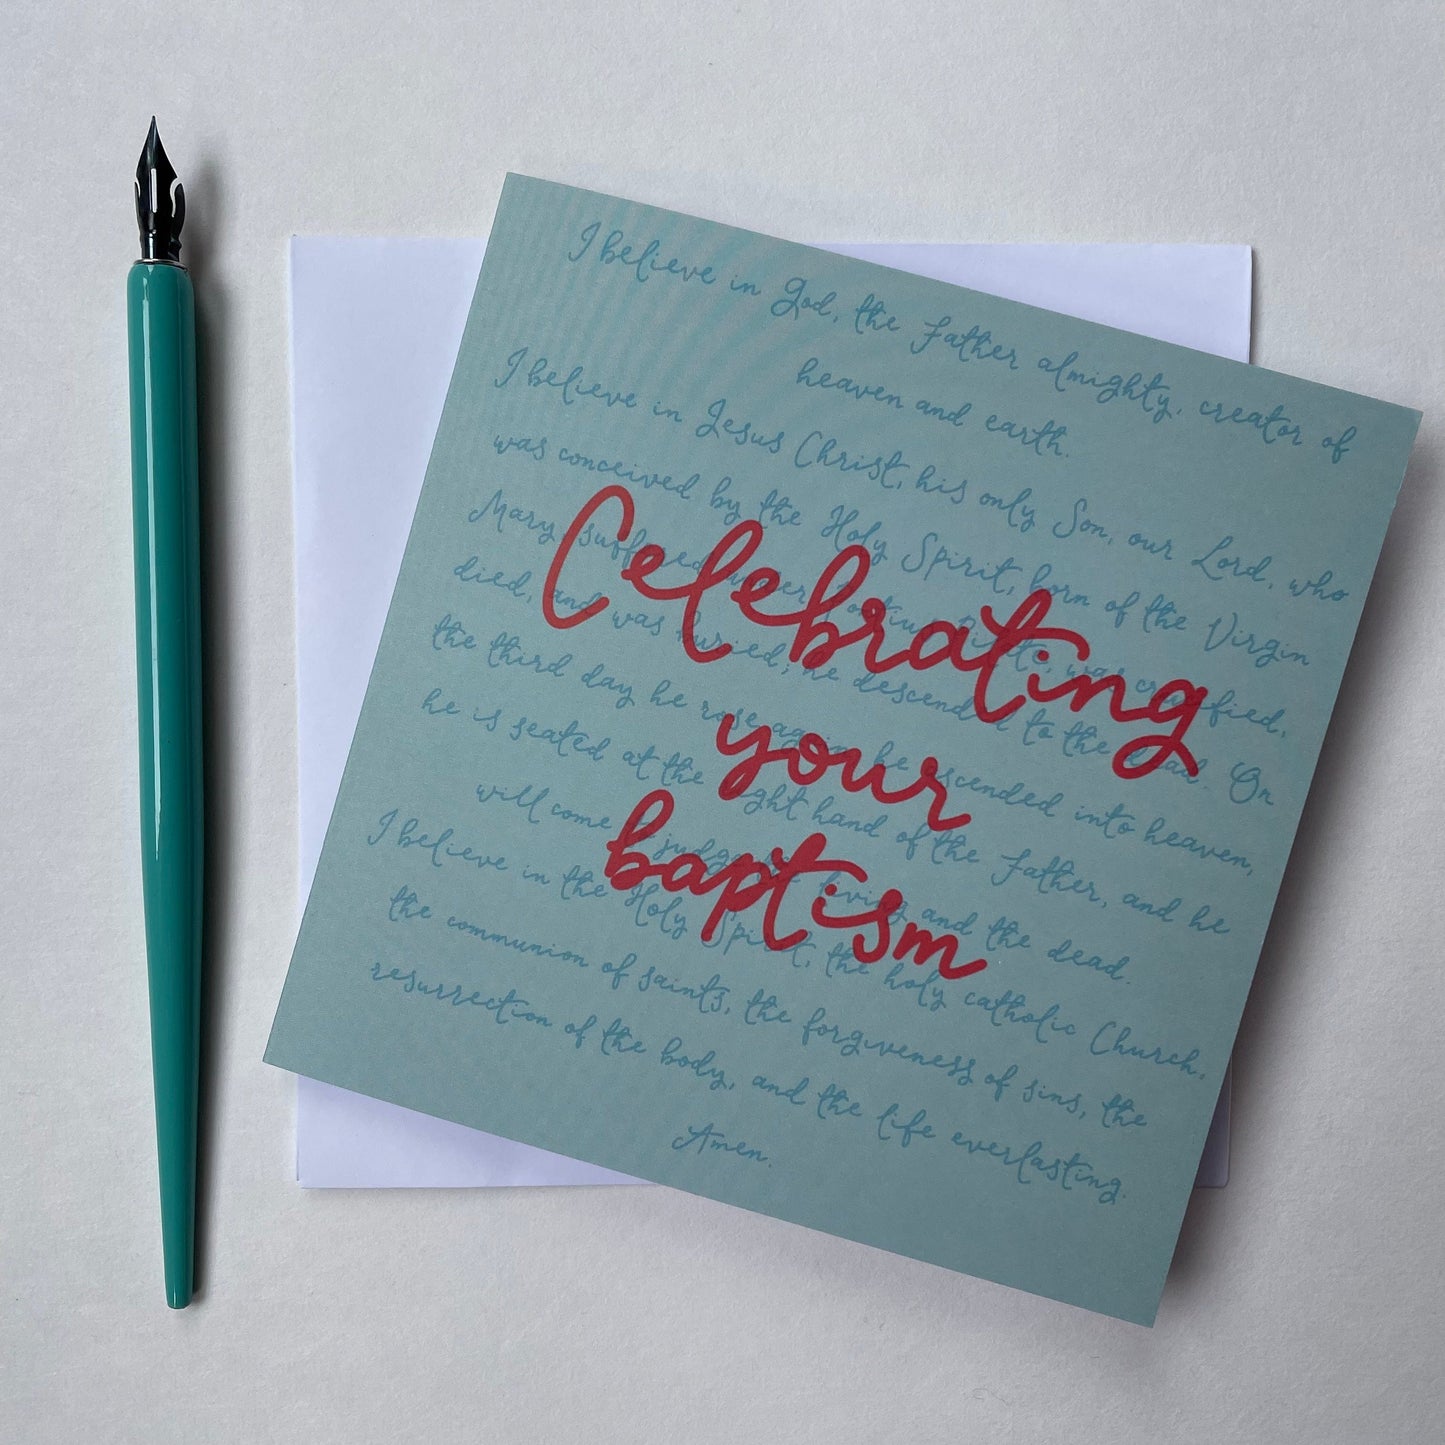 I believe in God, the Father almighty, creator of
heaven and earth.
I believe in Jesus Christ, his only Son, our Lord, who
was conceived by the Holy Spirit, born of the Virgin
Mary, suffered under Pontius Pilate, was crucified,
died, and was buried; he descended to the dead. On
the third day he rose again, he ascended into heaven,
he is seated at the right hand of the Father, and he
will come judge the living and the dead.
I believe in the Holy Spirit, the holy catholic Church,
the communion of saints, the forgiveness of sins, the
resurrection of the body, and the life everlasting.
Amen.
Celebrating
your
baptism